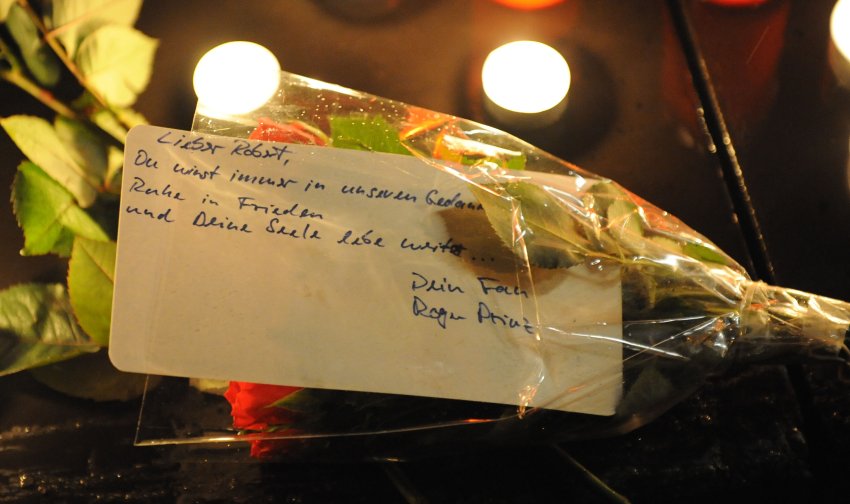 Lieber Robert,
Du wirst immer in unseren Gedanken
Ruhe in Frieden
und Deine Seele lebe weiter...
Dein Fan
Roger Prinz